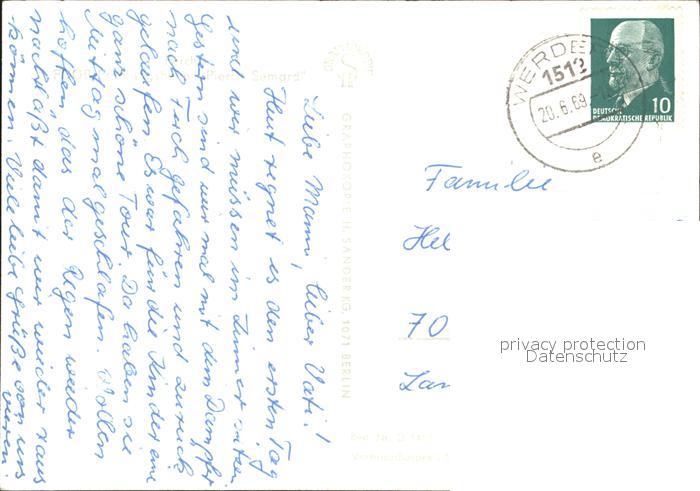 Liebe Mammi, lieber Vati!
Heut regnet es den ersten Tag
und wir müssen im Zimmer sitzen.
Gestern sind wir mal mit dem Dampfer
nach Teuch gefahren und zurück
gelaufen. Es war für die Kinder eine
ganz schöne Tour. Da haben sie
Mittag mal geschlafen. Wollen
hoffen, das der Regen wieder
nachläßt damit wir wieder raus
können. Viele liebe Grüße von uns
vieren.
GRAPHOKOPIE H. SANDER KG, 1071 BERLIN
WERDER
1512
20.6.69
e
DEUTSCHE
DEMOKRATISCHE REPUBLIK
10
Familie
Hel
70
privacy protection
Datenschutz